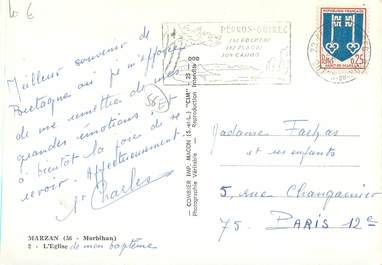 10 E
Meilleur souvenir de
Bretagne où je m'efforce
de me remettre de mes
grandes émotions et
à bientôt la joie de se
revoir. Affectueusement.
Charles
56 E
MARZAN (56 - Morbihan)
2 - L'Eglise de mon baptême
COMBIER IMP. MACON (S.-et-L.) "CIM"
Photographie Véritable - Reproduction Interdite
PERROS-GUIREC
SON GOLF
SES PLAGES
SON CASINO
REPUBLIQUE FRANÇAISE
0,25
MONT-DE-MARSAN
Madame Fachas
et ses enfants
5, rue Changarnier
75. PARIS 12e